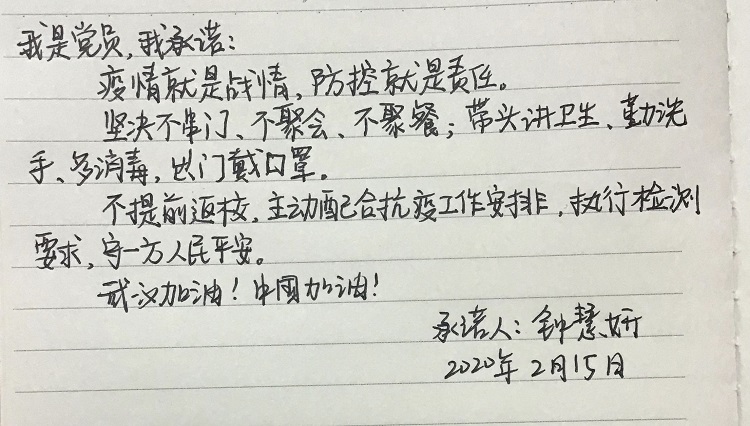 我是党员,我承诺:
疫情就是战情,防控就是责任。
坚决不串门、不聚会、不聚餐;带头讲卫生、勤洗
手、多消毒,出门戴口罩。
不提前返校,主动配合抗疫工作安排,执行检测
要求,守一方人民平安。
武汉加油!中国加油!
承诺人:钟慧妍
2020年2月15日